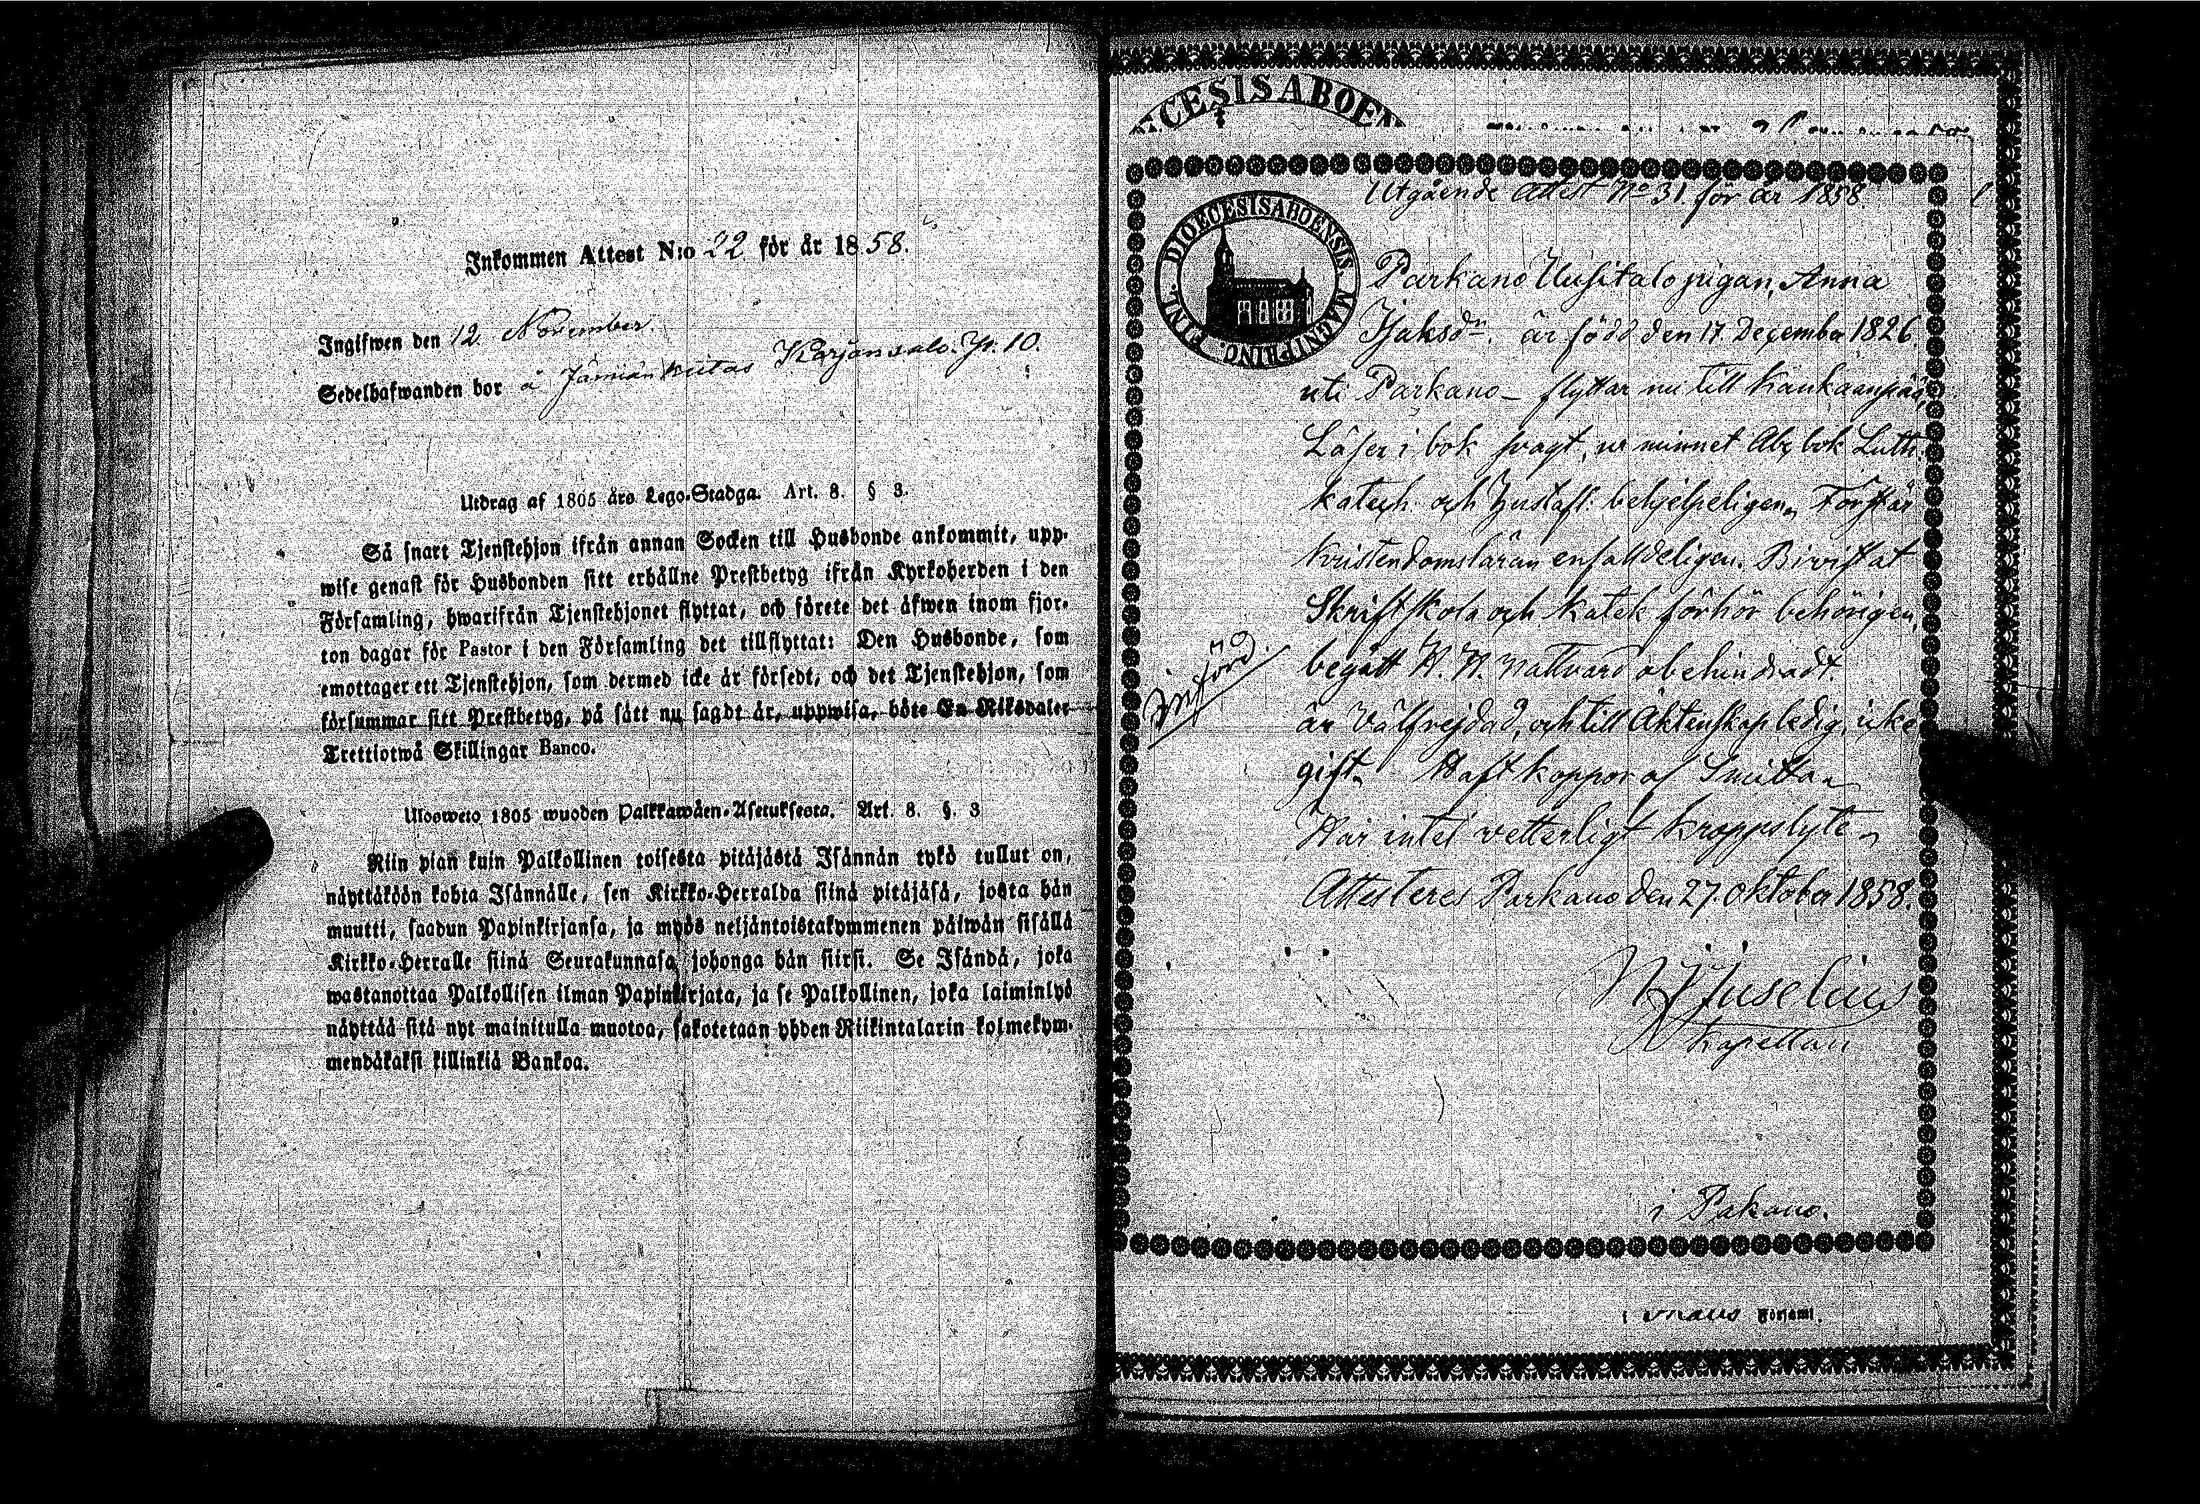 Inkommen Attest N:o 22 för år 1858.
Ingifwen den 12 November
Sedelhafwanden bor å Karjansalo
Utdrag af 1805 års Lego-Stadga. Art. 8. § 3.
Så snart Tjenstehjon ifrån annan Socken till Husbonde ankommit, upp-
wise genast för Husbonden sitt erhållne Prestbetyg ifrån Kyrkoherden i den
Församling, hwarifrån Tjenstehjonet flyttat, och förete det äfwen inom fjor-
ton dagar för Pastor i den Församling det tillflyttat: Den Husbonde, som
emottager ett Tjenstehjon, som dermed icke är försedt, och det Tjenstehjon, som
försummar sitt Prestbetyg, på sätt nu sagdt är, uppwisa, böte En Riksdaler
Trettiotwå Skillingar Banco.
Ulosweto 1805 wuoden Palkkawäen-Asetuksesta. Art. 8. §. 3
Niin pian kuin Palkollinen toisesta pitäjästä Isännän tykö tullut on,
näyttäköön kohta Isännälle, sen Kirkko-Herralda siinä pitäjäsä, josta hän
muutti, saadun Papinkirjansa, ja myös neljäntoistakymmenen päiwän sisällä
Kirkko-Herralle siinä Seurakunnasa johonga hän siirsi. Se Isändä, joka
wastanottaa Palkollisen ilman Papinkirjata, ja se Palkollinen, joka laiminlyö
näyttää sitä nyt mainitulla muotoa, sakotetaan yhden Riikintalarin kolmekym-
mendäkaksi killinkiä Bankoa.
ECESIS ABOEN
Utgående Attest No 31. för år 1858.
DIOECESIS ABOENSIS. MAGNI PRINC. FINL.
Parkano Uusitalo pigan, Anna
Isaksdr. är född den 17. December 1826
uti Parkano – flyttar nu till Kankaanpää,
Läser i bok svagt, ur minnet Abc bok Luth.
katech. och Hustafl. behjelpeligen, Förstår
Kristendomsläran enfalldeligen. Bivistat
Skriftskola och katek förhör behörigen,
införd.
begått H. H. nattvard obehindradt.
är Välfrejdad, och till Äktenskap ledig, icke
gift. Haft koppor af Smitta
Har intet vetterligt kroppslyte
Attesteres Parkano den 27. Oktober 1858.
Juselius
Kapellan
i Pakano.
i Församl.